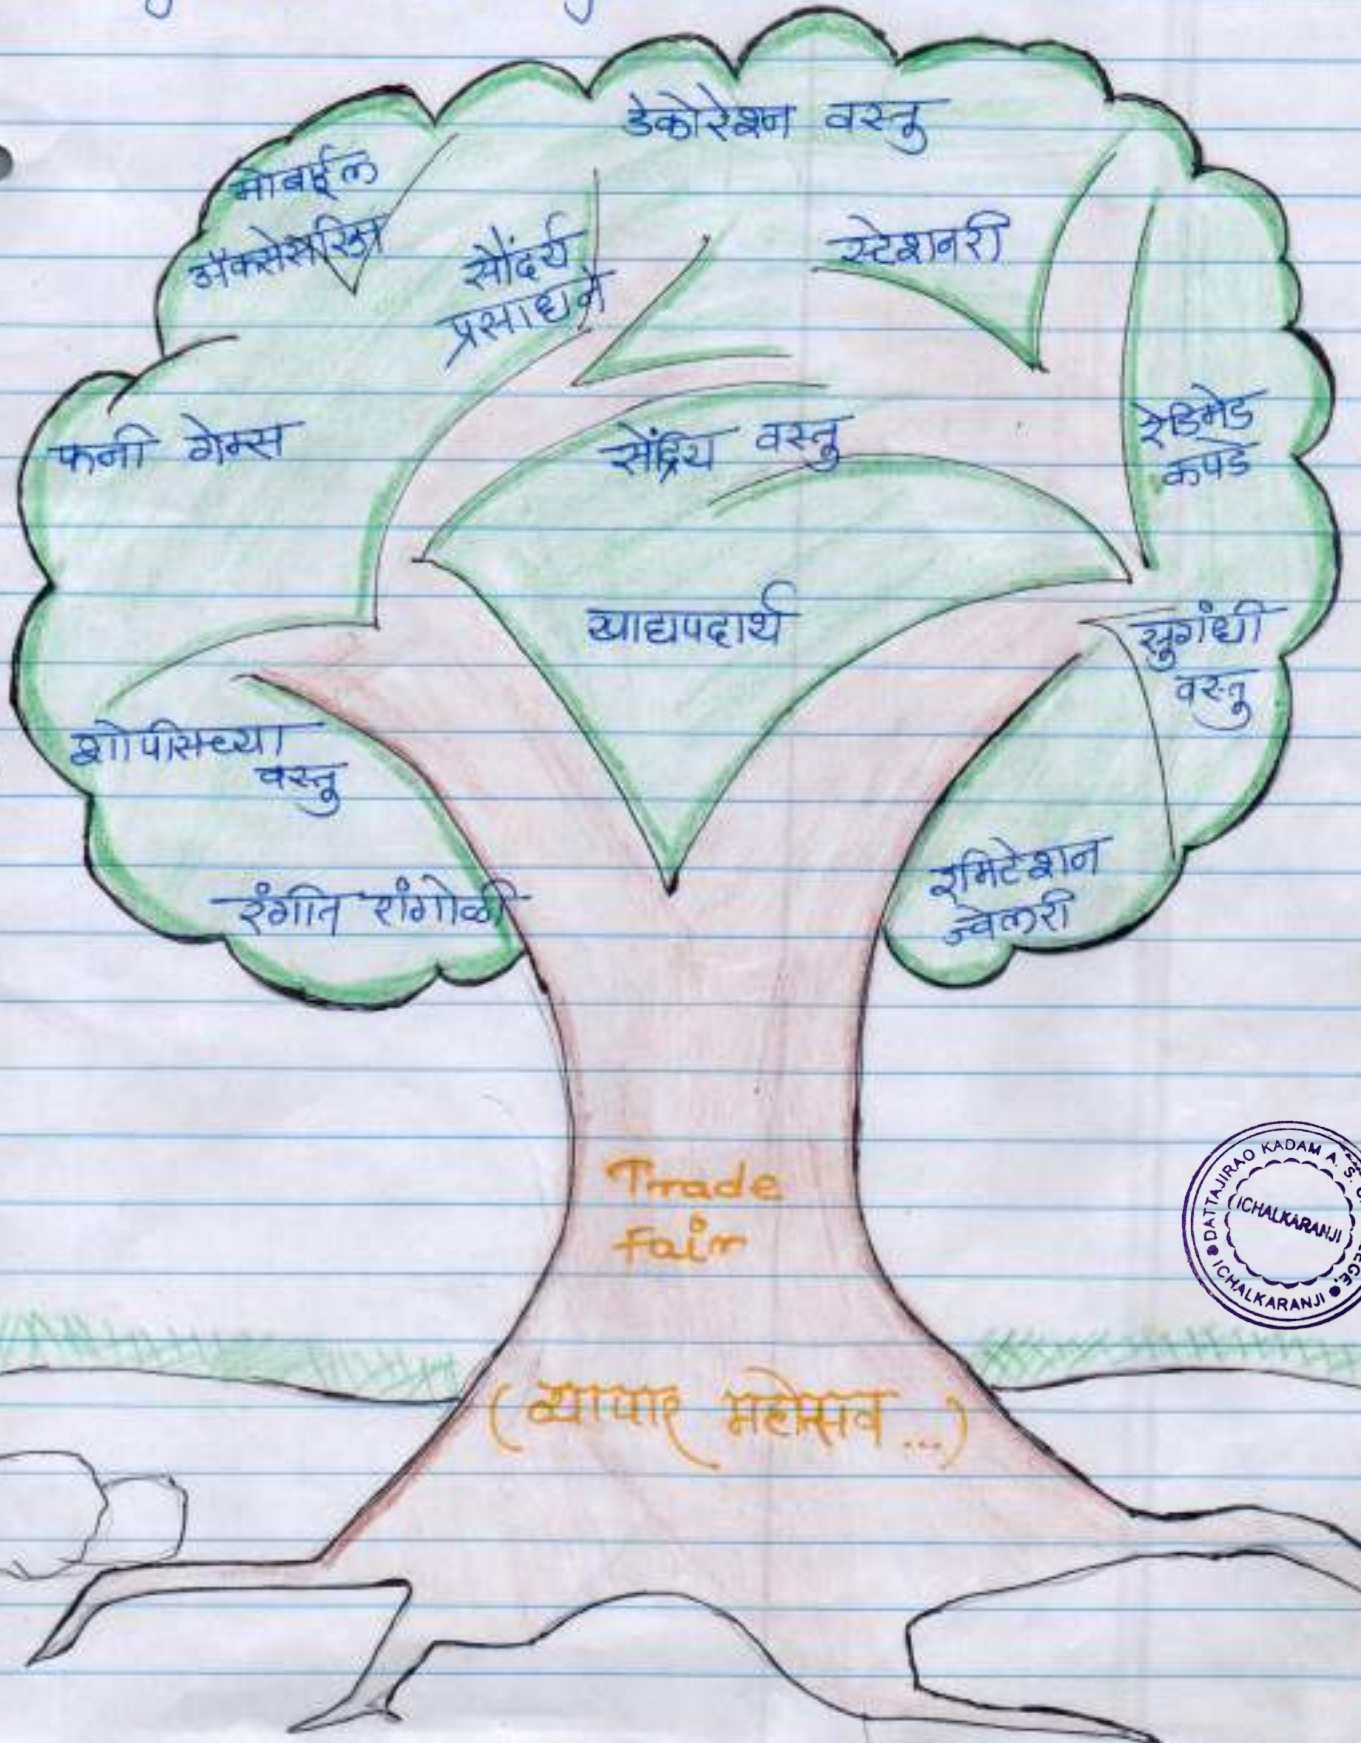 डेकोरेशन वस्तु
मोबाईल
ॲक्सेसरिज
सौंदर्य
प्रसाधने
स्टेशनरी
फनी गेम्स
सेंद्रिय वस्तु
रेडिमेड
कपडे
खाद्यपदार्थ
सुगंधी
वस्तु
शोपीसच्या
वस्तु
रंगीत रांगोळी
इमिटेशन
ज्वेलरी
Trade
Fair
(व्यापार महोत्सव...)
DATTAJIRAO KADAM A. S.
ICHALKARANJI
ICHALKARANJI